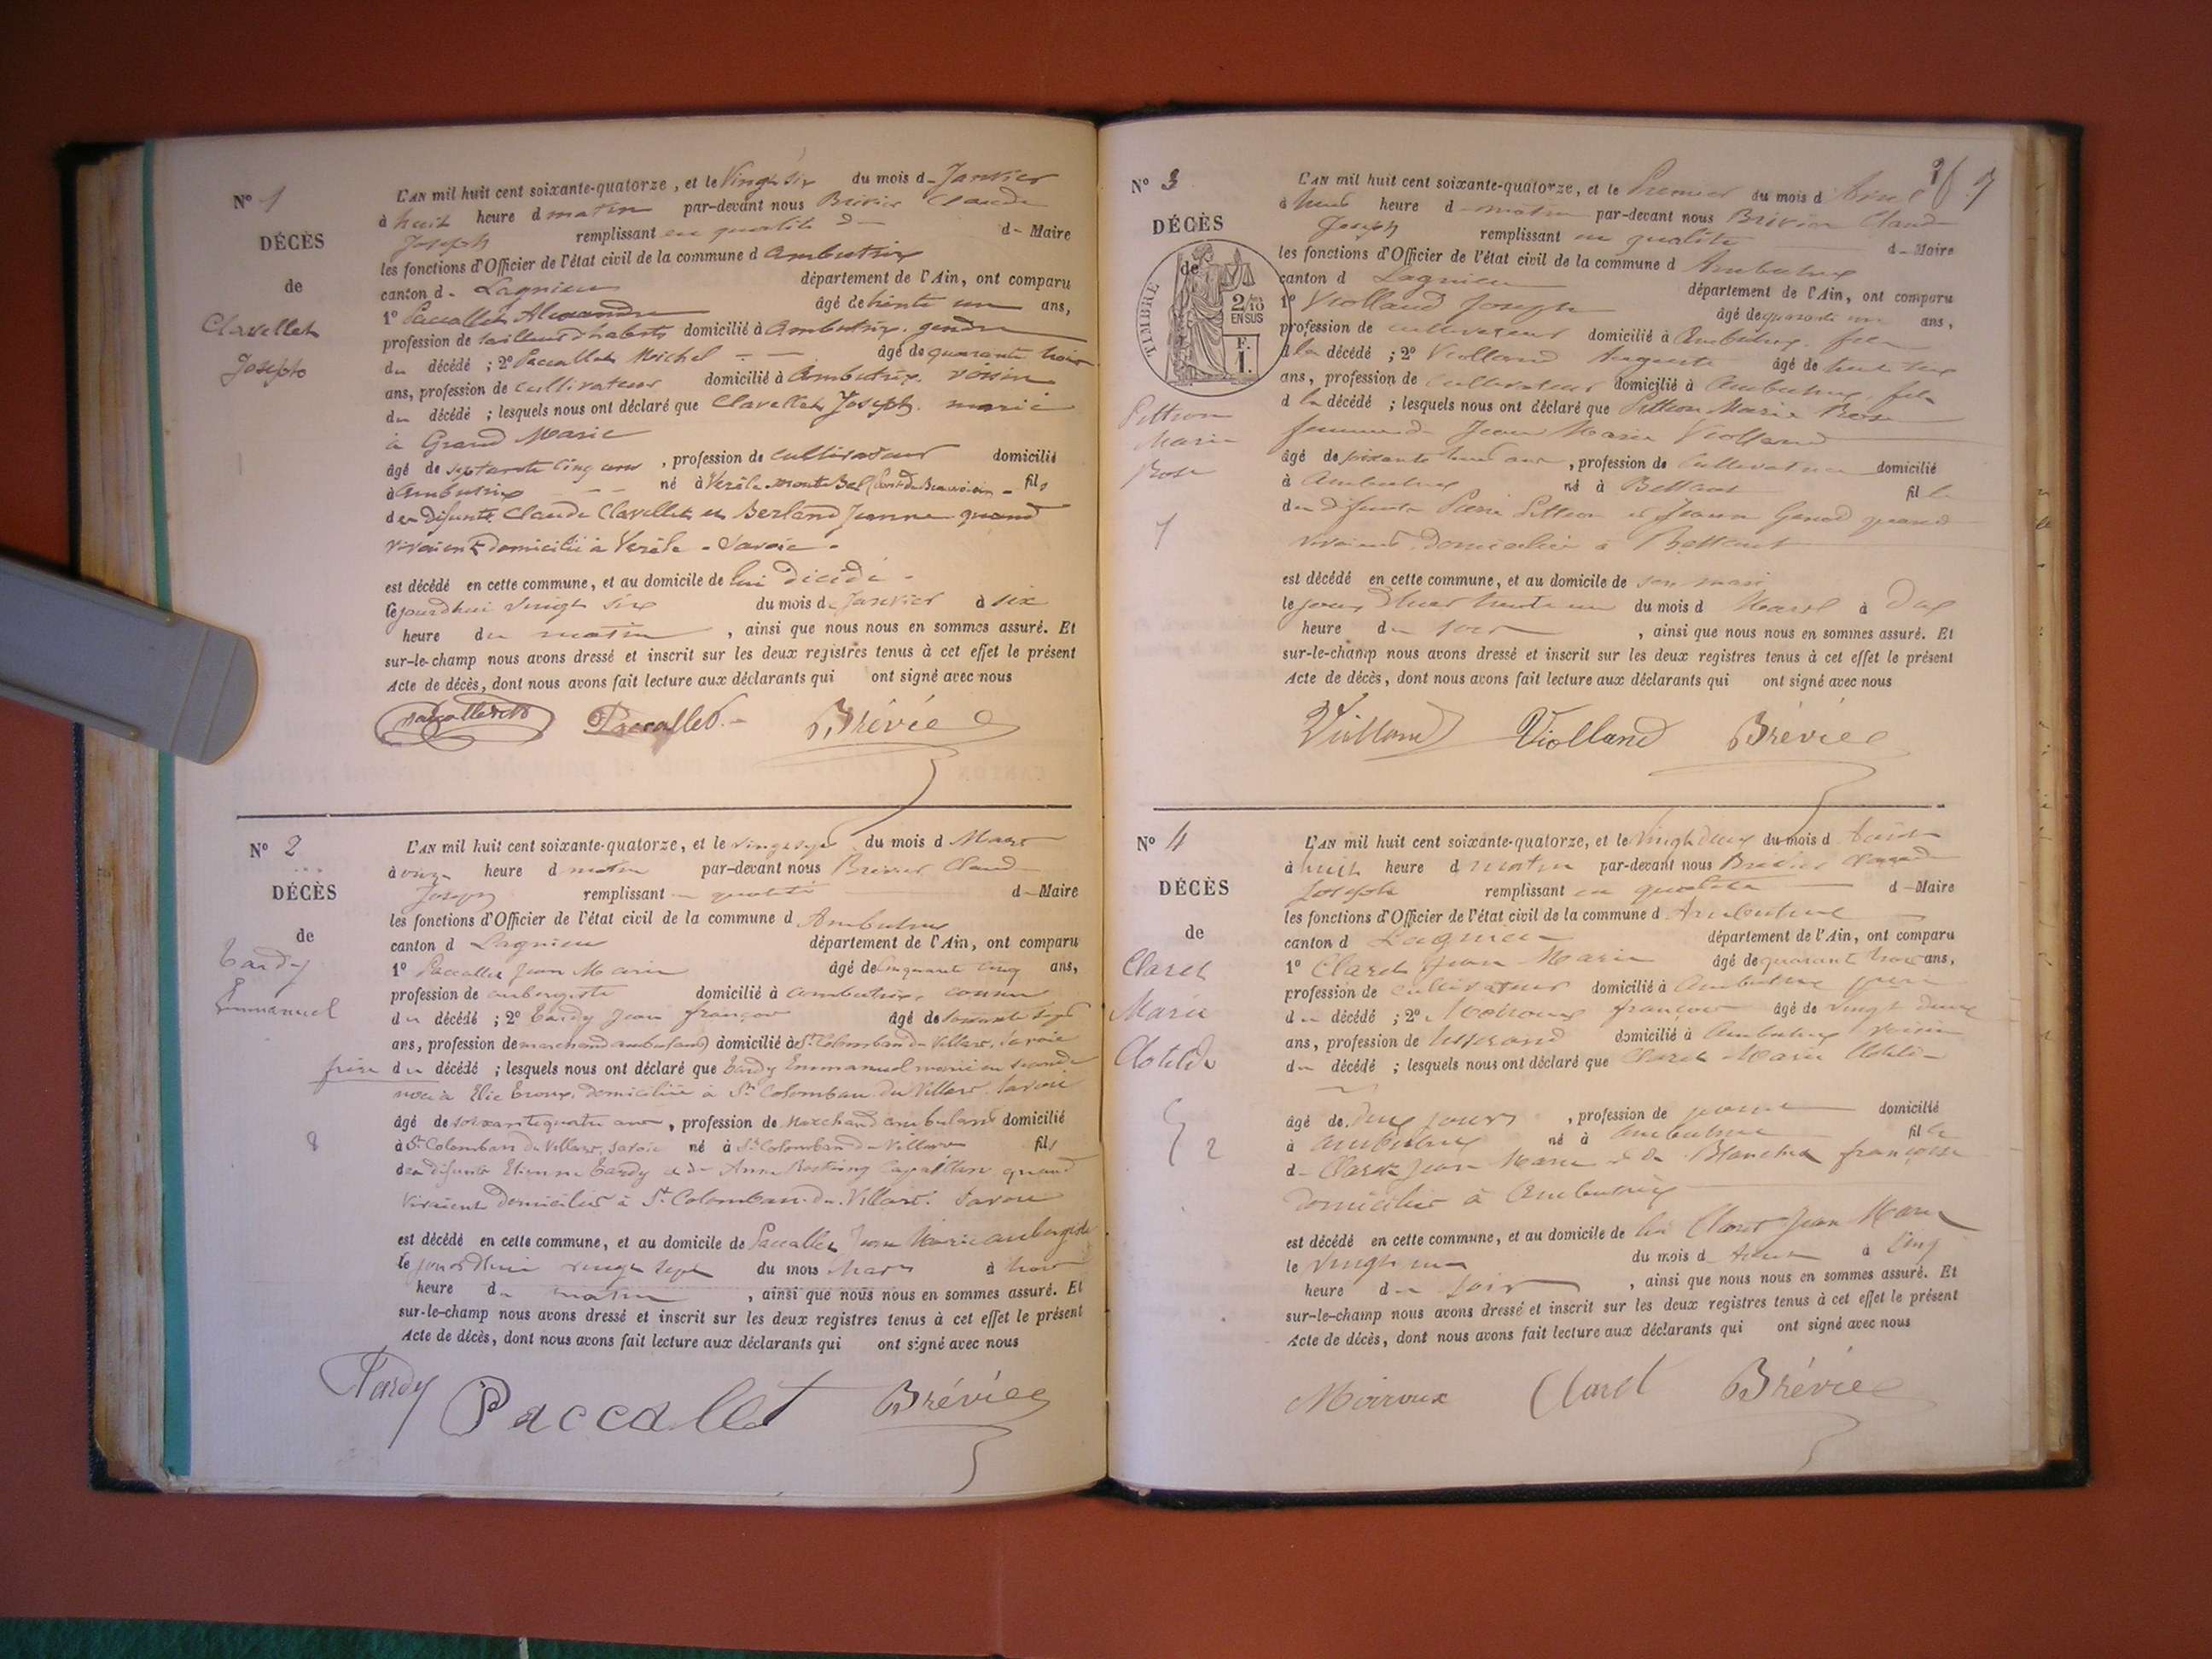 N° 1
DÉCÈS
de
Clavellet
Joseph
L'AN mil huit cent soixante-quatorze, et le Vingt six du mois d Janvier
à huit heure d matin par-devant nous Brévier Claude
Joseph remplissant en qualité d- d- Maire
les fonctions d'Officier de l'état civil de la commune d Ambutrix
canton d. Lagnieu département de l'Ain, ont comparu
1° Paccallet Alexandre âgé de trente un ans,
profession de tailleur d'habits domicilié à Ambutrix. gendre
du décédé ; 2° Paccallet Michel âgé de quarante trois
ans, profession de cultivateur domicilié à Ambutrix. voisin
du décédé ; lesquels nous ont déclaré que Clavellet Joseph. marié
à Grand Marie
âgé de septante cinq ans, profession de cultivateur domicilié
à Ambutrix né à Verèle fils
des défunts Claude Clavellet et Berland Jeanne quand
vivaient domicilié à Verèle - Savoie -
est décédé en cette commune, et au domicile de lui décédé -
le jourdhui vingt six du mois de Janvier à six
heure du matin, ainsi que nous nous en sommes assuré. Et
sur-le-champ nous avons dressé et inscrit sur les deux registres tenus à cet effet le présent
Acte de décès, dont nous avons fait lecture aux déclarants qui ont signé avec nous
Paccallet Brévier
N° 2
DÉCÈS
de
Tardy
Emmanuel
L'AN mil huit cent soixante-quatorze, et le vingt sept du mois d Mars
à onze heure d matin par-devant nous Brévier Claude
Joseph remplissant en qualité d-Maire
les fonctions d'Officier de l'état civil de la commune d Ambutrix
canton d Lagnieu département de l'Ain, ont comparu
1° Paccallet Jean Marie âgé de Cinquante cinq ans,
profession de aubergiste domicilié à Ambutrix,
du décédé ; 2° Tardy Jean françois âgé de soixante sept
ans, profession de marchand ambulant domicilié à St Colomban du Villars, Savoie
frère du décédé ; lesquels nous ont déclaré que Tardy Emmanuel marié en seconde
domiciliée à St Colomban du Villars. Savoie
âgé de soixante quatre ans, profession de Marchand ambulant domicilié
à St Colomban du Villars, Savoie né à St Colomban du Villars fils
des défunts Etienne Tardy et de Anne quand
vivaient domiciliés à St Colomban du Villars. Savoie
est décédé en cette commune, et au domicile de Paccallet Jean Marie aubergiste
le jourdhui vingt sept du mois Mars à trois
heure du matin, ainsi que nous nous en sommes assuré. Et
sur-le-champ nous avons dressé et inscrit sur les deux registres tenus à cet effet le présent
Acte de décès, dont nous avons fait lecture aux déclarants qui ont signé avec nous
8
Tardy Paccallet Brévier
N° 3
DÉCÈS
de
TIMBRE
2/10
EN SUS
F.
1.
Pittion
Marie
Rose
7
L'AN mil huit cent soixante-quatorze, et le Premier du mois d Avril
à heure d matin par-devant nous Brévier Claude
Joseph remplissant en qualité d-Maire
les fonctions d'Officier de l'état civil de la commune d Ambutrix
canton d Lagnieu département de l'Ain, ont comparu
1° Violland Joseph âgé de quarante un ans,
profession de cultivateur domicilié à Ambutrix.
d la décédé ; 2° Violland Auguste âgé de
ans, profession de cultivateur domicilié à Ambutrix, fils
d la décédé ; lesquels nous ont déclaré que Pittion Marie Rose
femme de Jean Marie Violland
âgé de soixante ans, profession de Cultivatrice domicilié
à Ambutrix né à Bettant fil le
des défunts Pierre Pittion et Jeanne quand
vivaient domicilié à Bettant
est décédé en cette commune, et au domicile de son mari
le jour d'hier trente un du mois d Mars à dix
heure du soir, ainsi que nous nous en sommes assuré. Et
sur-le-champ nous avons dressé et inscrit sur les deux registres tenus à cet effet le présent
Acte de décès, dont nous avons fait lecture aux déclarants qui ont signé avec nous
Violland Violland Brévier
N° 4
DÉCÈS
de
Claret
Marie
Clotilde
2
L'AN mil huit cent soixante-quatorze, et le vingt deux du mois d
à huit heure d matin par-devant nous Brévier Claude
Joseph remplissant en qualité d-Maire
les fonctions d'Officier de l'état civil de la commune d Ambutrix
canton d Lagnieu département de l'Ain, ont comparu
1° Claret Jean Marie âgé de quarante trois ans,
profession de cultivateur domicilié à Ambutrix père
du décédé ; 2° Moiroux françois âgé de vingt deux
ans, profession de tisserand domicilié à Ambutrix voisin
du décédé ; lesquels nous ont déclaré que Claret Marie Clotilde
âgé de deux jours, profession de domicilié
à Ambutrix né à Ambutrix fil le
d- Claret Jean Marie et de Blanchet françoise
domiciliés à Ambutrix
est décédé en cette commune, et au domicile de Claret Jean Marie
le vingt un du mois d à cinq
heure du soir, ainsi que nous nous en sommes assuré. Et
sur-le-champ nous avons dressé et inscrit sur les deux registres tenus à cet effet le présent
Acte de décès, dont nous avons fait lecture aux déclarants qui ont signé avec nous
Moiroux Claret Brévier